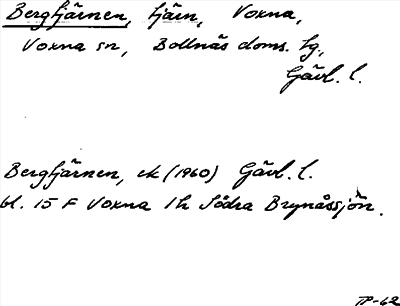 Bergtjärnen, tjärn, Voxna,
Voxna sn, Bollnäs doms. tg,
Gävl. l.
Bergtjärnen, ek (1960) Gävl. l.
bl. 15 F Voxna 1h Södra Brynåssjön.
TP-62